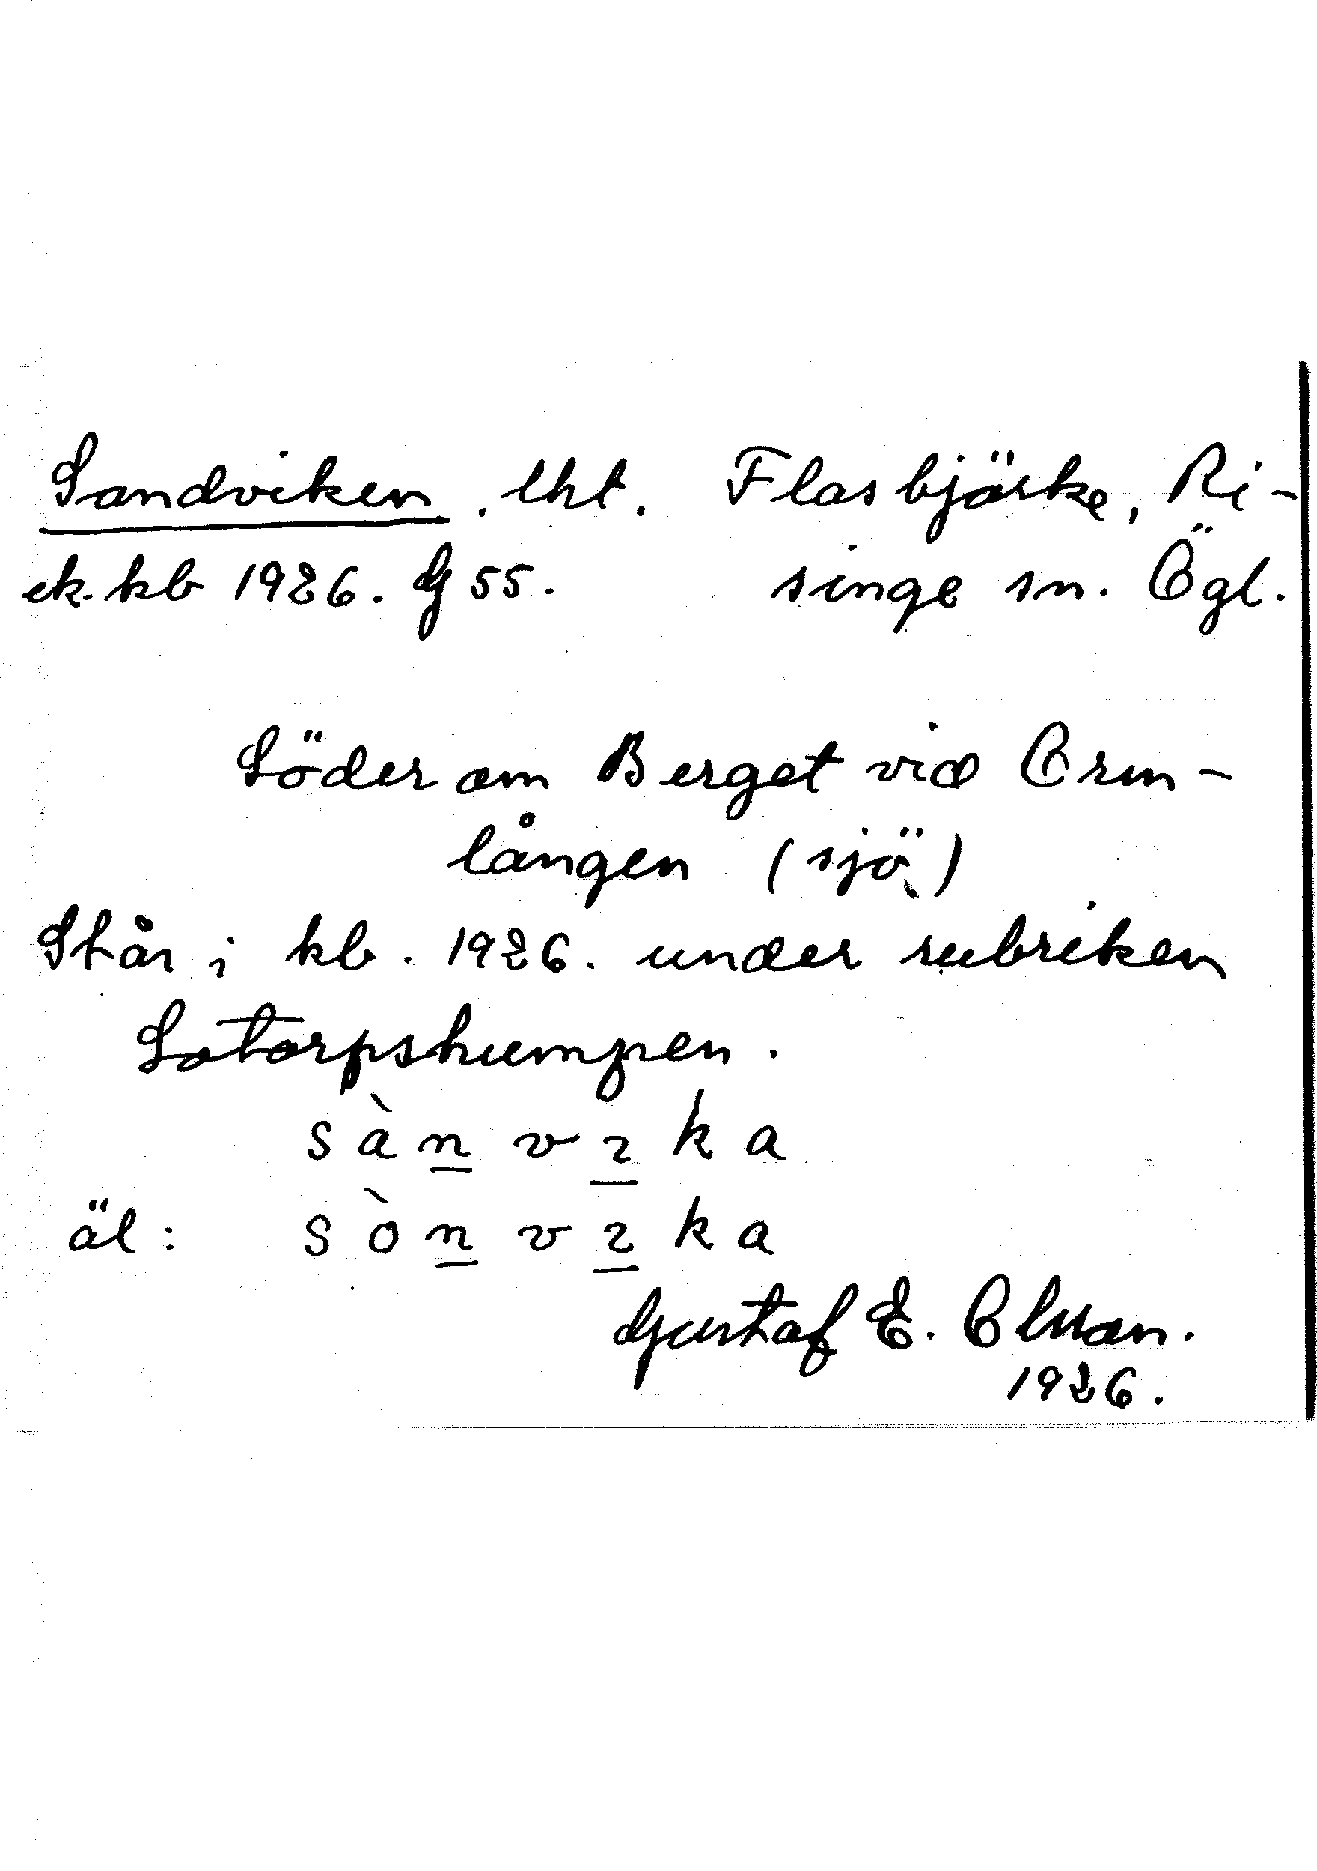 Sandviken, lht. Flasbjörke, Ri-
ek. kb 1926. G 55. singe sn. Ögl.
Söder om Berget vid Orm-
lången (sjö)
Står i kb. 1926. under rubriken
Sotorpshumpen.
sàn̲vı̲ka
äl: sòn̲vı̲ka
Gustaf E. Olsson.
1926.